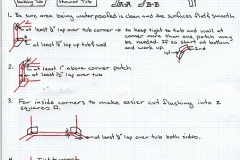 Soaking Tub
Shower Tub
U1
1. Be sure area being waterproofed is clean and the surfaces flat & smooth
at least ½" lap over tub corner → to keep tight to tub and wall at
corner more than one patch may
be needed. If so start at bottom
and work up.
at least ½" up tub & wall
2nd
1st
2.
at least 1" above corner patch
at least ½" lap over tub
3. For inside corners to make easier cut flashing into 2
squares
at least ½" lap over tub both sides.